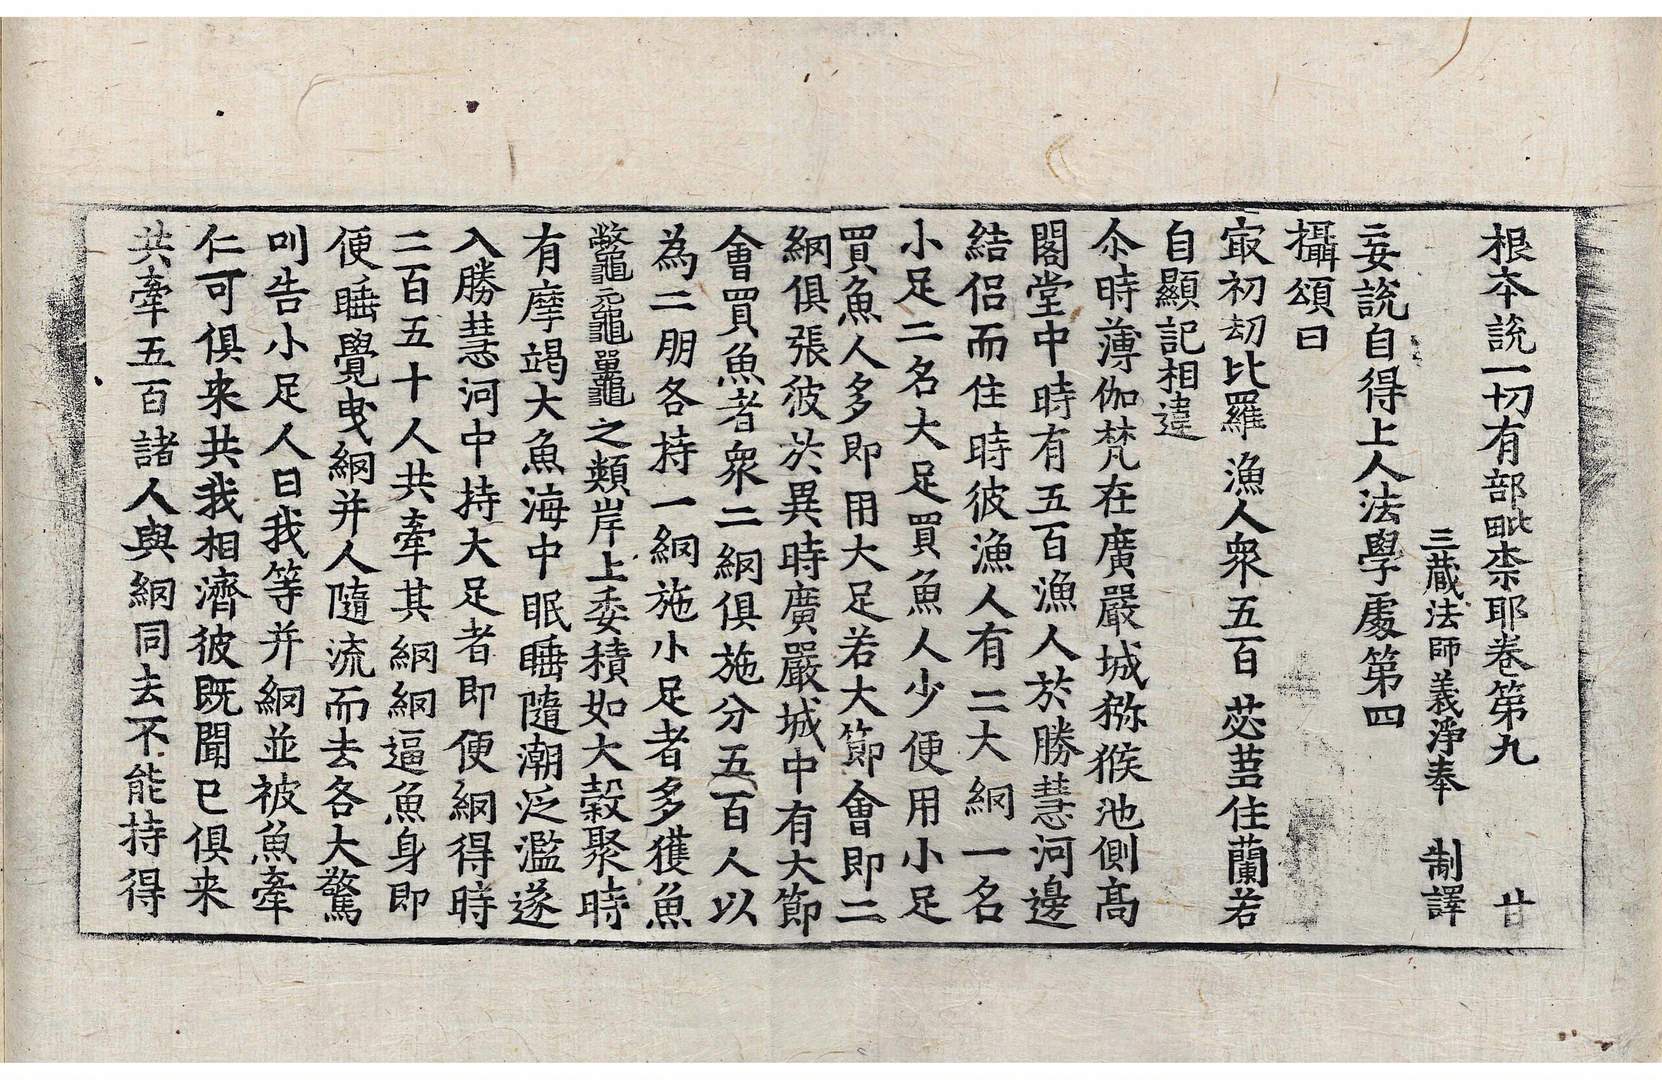 根本說一切有部毗柰耶卷第九 廿
三藏法師義淨奉 制譯
妄說自得上人法學處第四
攝頌曰
冣初刧比羅 漁人衆五百 苾蒭住蘭若
自顯記相違
尒時薄伽梵在廣嚴城猕猴池側髙
閣堂中時有五百漁人於勝慧河邊
結侣而住時彼漁人有二大網一名
小足二名大足買魚人少便用小足
買魚人多即用大足若大節會即二
網俱張彼於異時廣嚴城中有大節
會買魚者衆二網俱施分五百人以
為二朋各持一網施小足者多獲魚
鼈黿鼉之類岸上委積如大穀聚時
有摩竭大魚海中眠睡隨潮泛濫遂
入勝慧河中持大足者即便網得時
二百五十人共牽其網網逼魚身即
便睡覺曳網并人隨流而去各大驚
叫告小足人曰我等并網並被魚牽
仁可俱来共我相濟彼既聞已俱来
共牽五百諸人與網同去不能持得